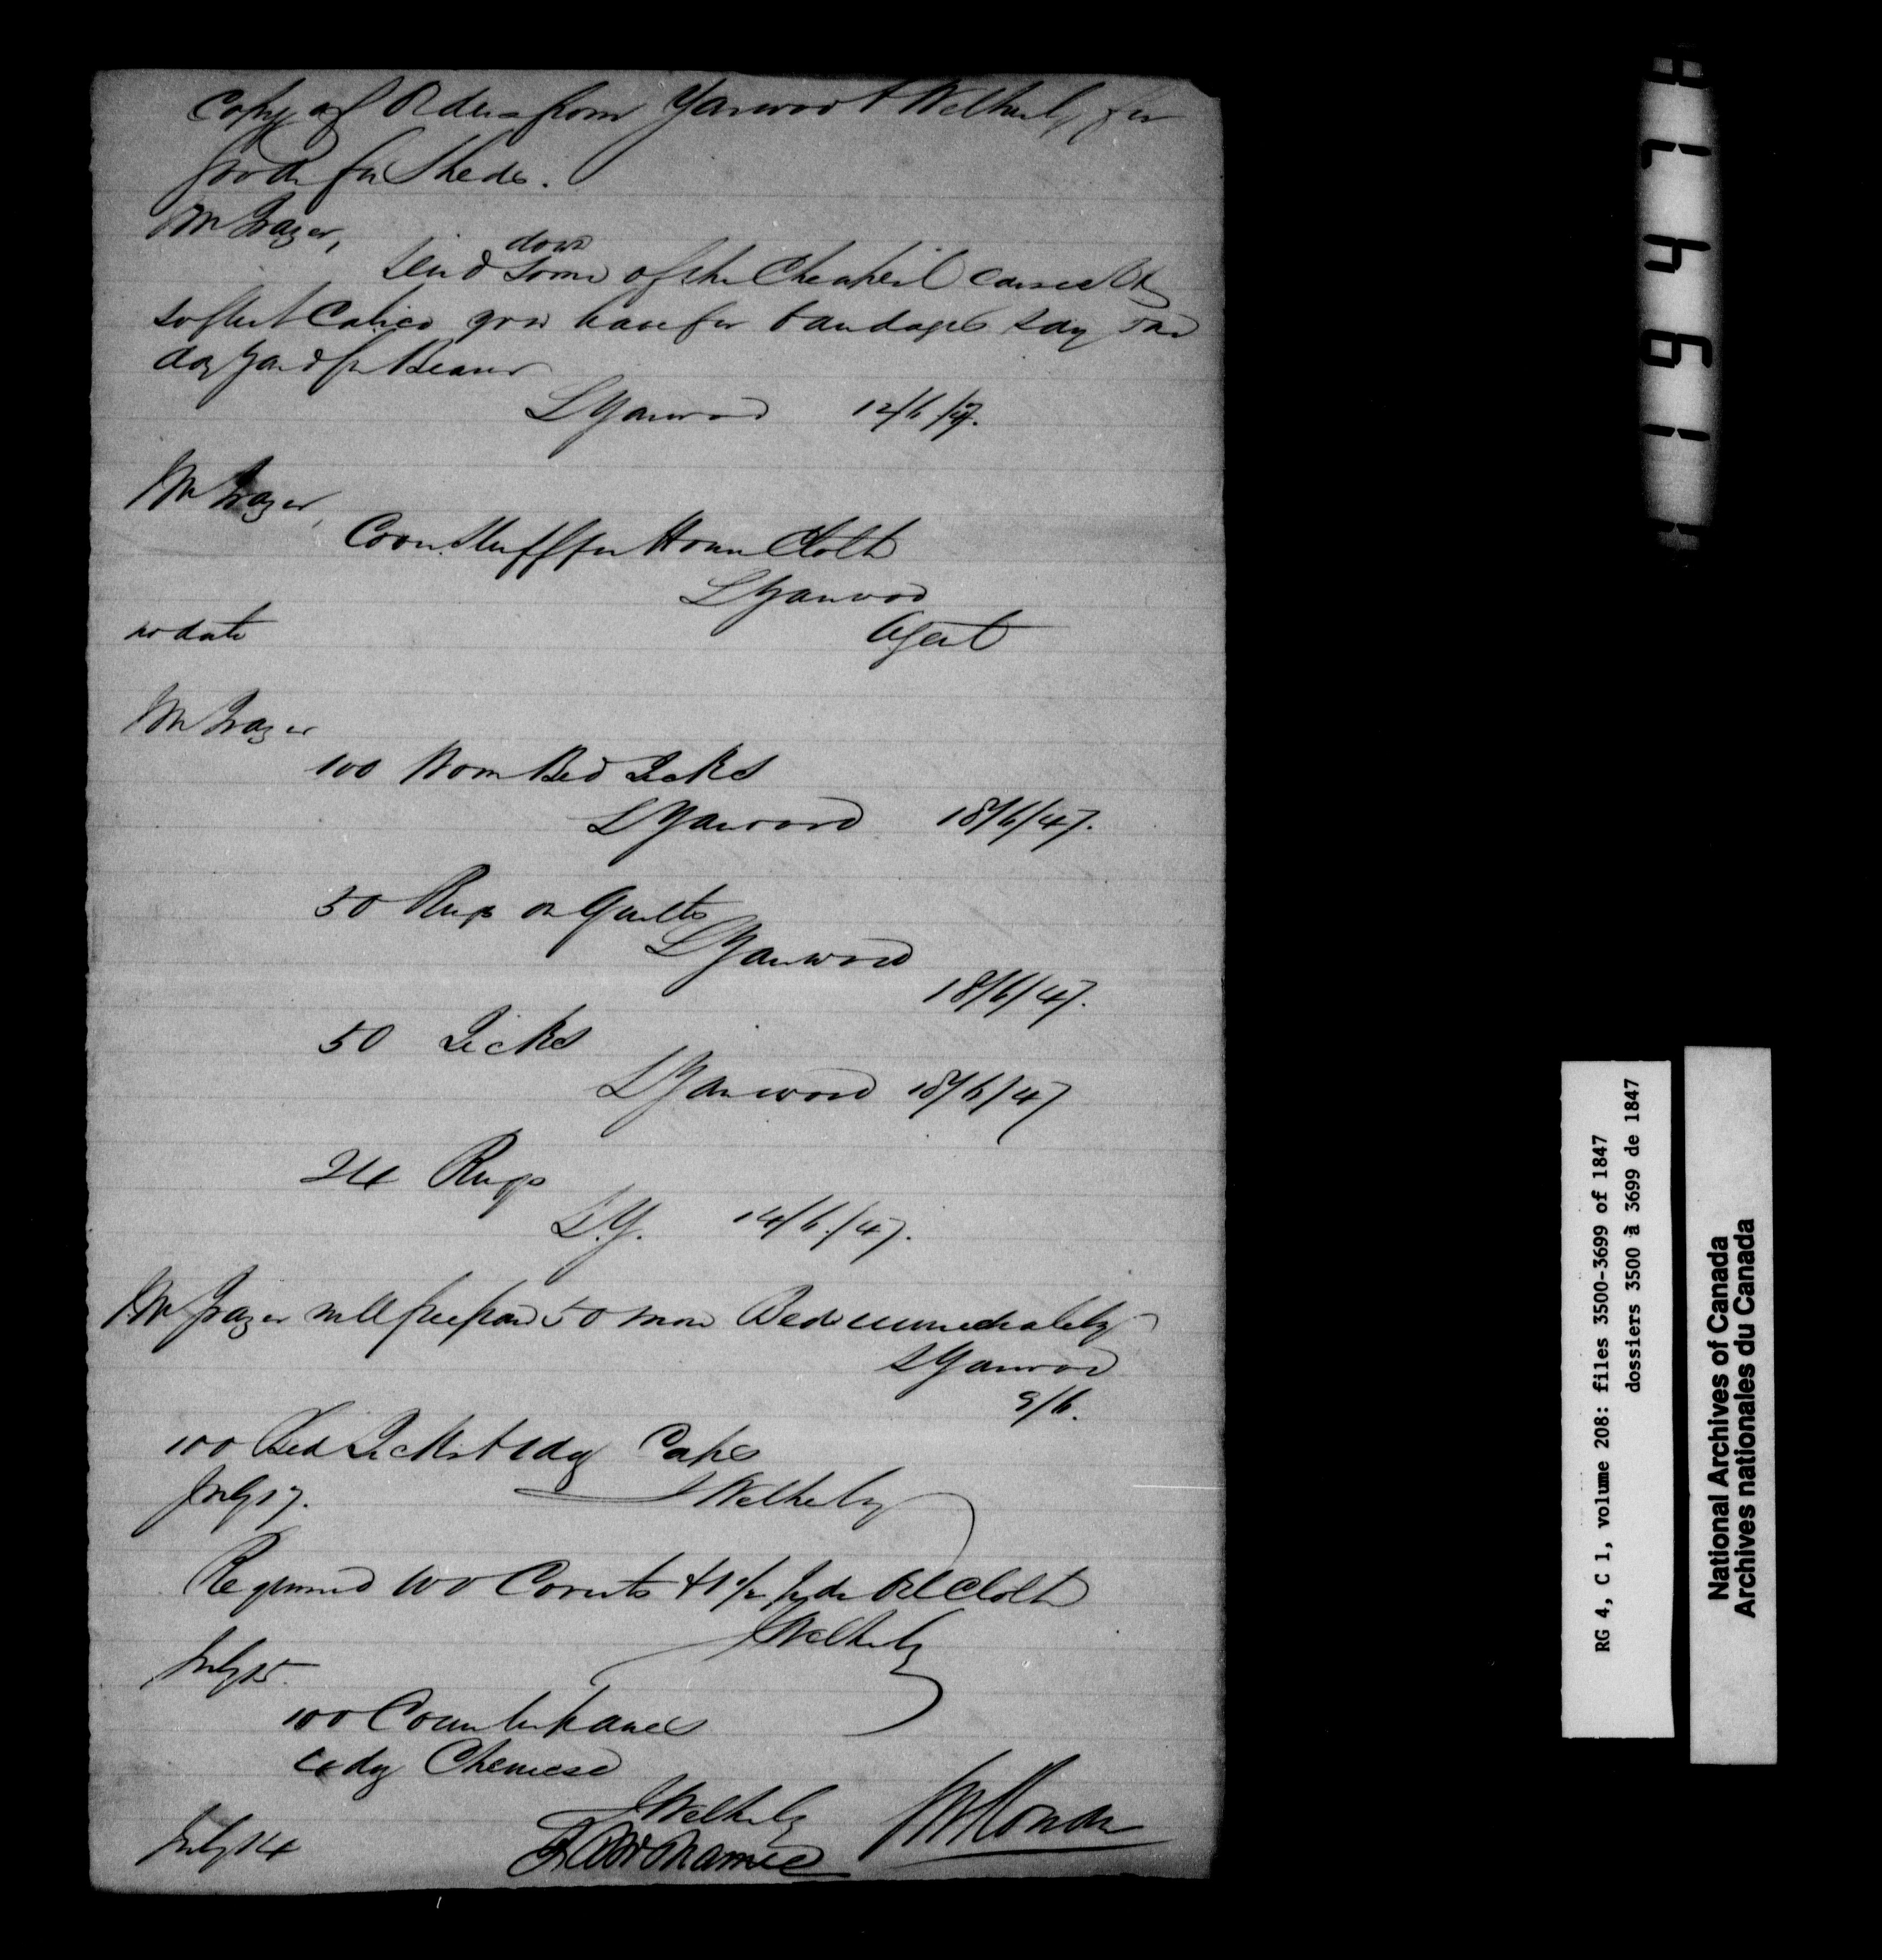 Copy of Orders from Yarwood & Wetherly for
goods for Sheds.
Mr Frazer,
Send down some of the Cheapest
softest Calico you have for bandages say
doz yard for Bearer
L Yarwood 12/6/47.
Mr Frazer,
Coarse Stuff for House Cloth
L Yarwood
Agent
no date
Mr Frazer
100 Bed Ticks
L Yarwood 18/6/47.
50 Rugs or Quilts
L Yarwood
18/6/47.
50 Ticks
L Yarwood 18/6/47
24 Rugs
L.Y. 14/6/47.
Mr Frazer will prepare 50 more Beds immediately
L Yarwood
9/6.
100 Bed Ticks & 1 doz Caps
July 17. Wetherly
Required 100 & 1 1/2 yds Oil Cloth
Wetherly
July 15.
100 Counterpanes
doz Chemese
Wetherly
July 14
7
4
9
1
RG 4, C 1, volume 208: files 3500-3699 of 1847
dossiers 3500 à 3699 de 1847
National Archives of Canada
Archives nationales du Canada